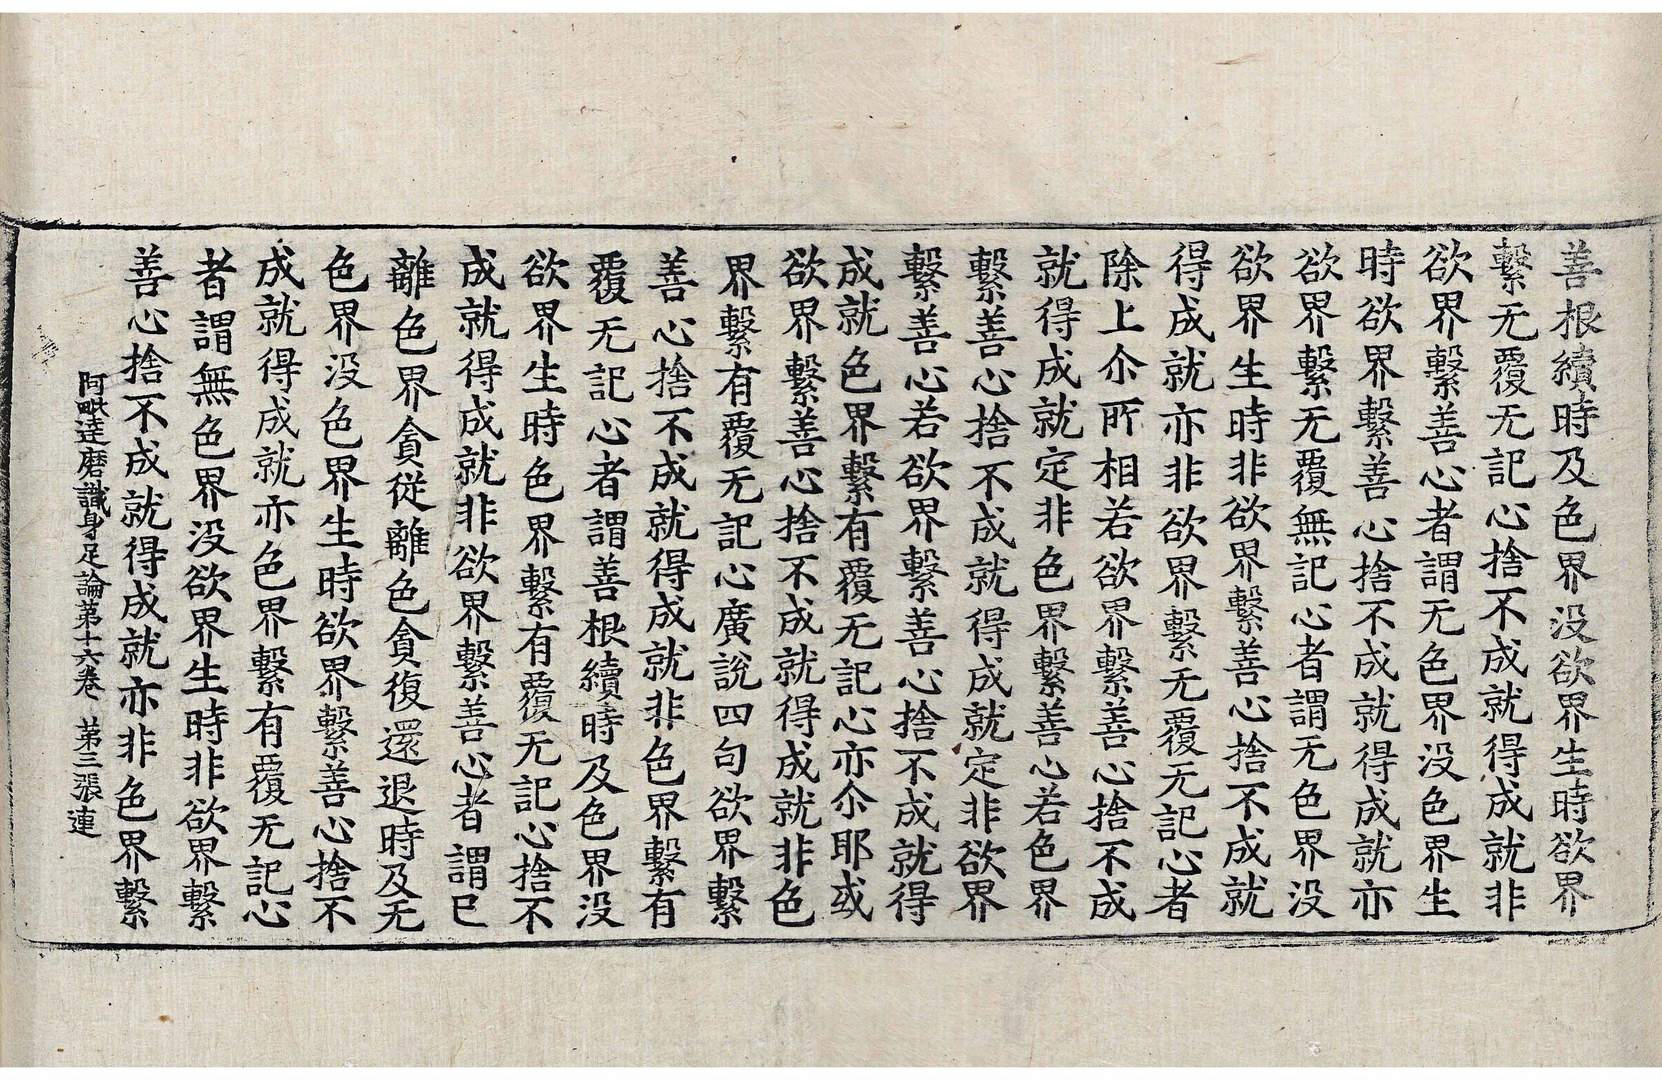 善根續時及色界没欲界生時欲界
繫无覆无記心捨不成就得成就非
欲界繫善心者謂无色界没色界生
時欲界繫善心捨不成就得成就亦
欲界繫无覆無記心者謂无色界没
欲界生時非欲界繫善心捨不成就
得成就亦非欲界繫无覆无記心者
除上尒所相若欲界繫善心捨不成
就得成就定非色界繫善心若色界
繫善心捨不成就得成就定非欲界
繫善心若欲界繫善心捨不成就得
成就色界繫有覆无記心亦尒耶或
欲界繫善心捨不成就得成就非色
界繫有覆无記心廣說四句欲界繫
善心捨不成就得成就非色界繫有
覆无記心者謂善根續時及色界没
欲界生時色界繫有覆无記心捨不
成就得成就非欲界繫善心者謂已
離色界貪從離色貪復還退時及无
色界没色界生時欲界繫善心捨不
成就得成就亦色界繫有覆无記心
者謂無色界没欲界生時非欲界繫
善心捨不成就得成就亦非色界繫
阿毗達磨識身足論第十六卷 第三張 連